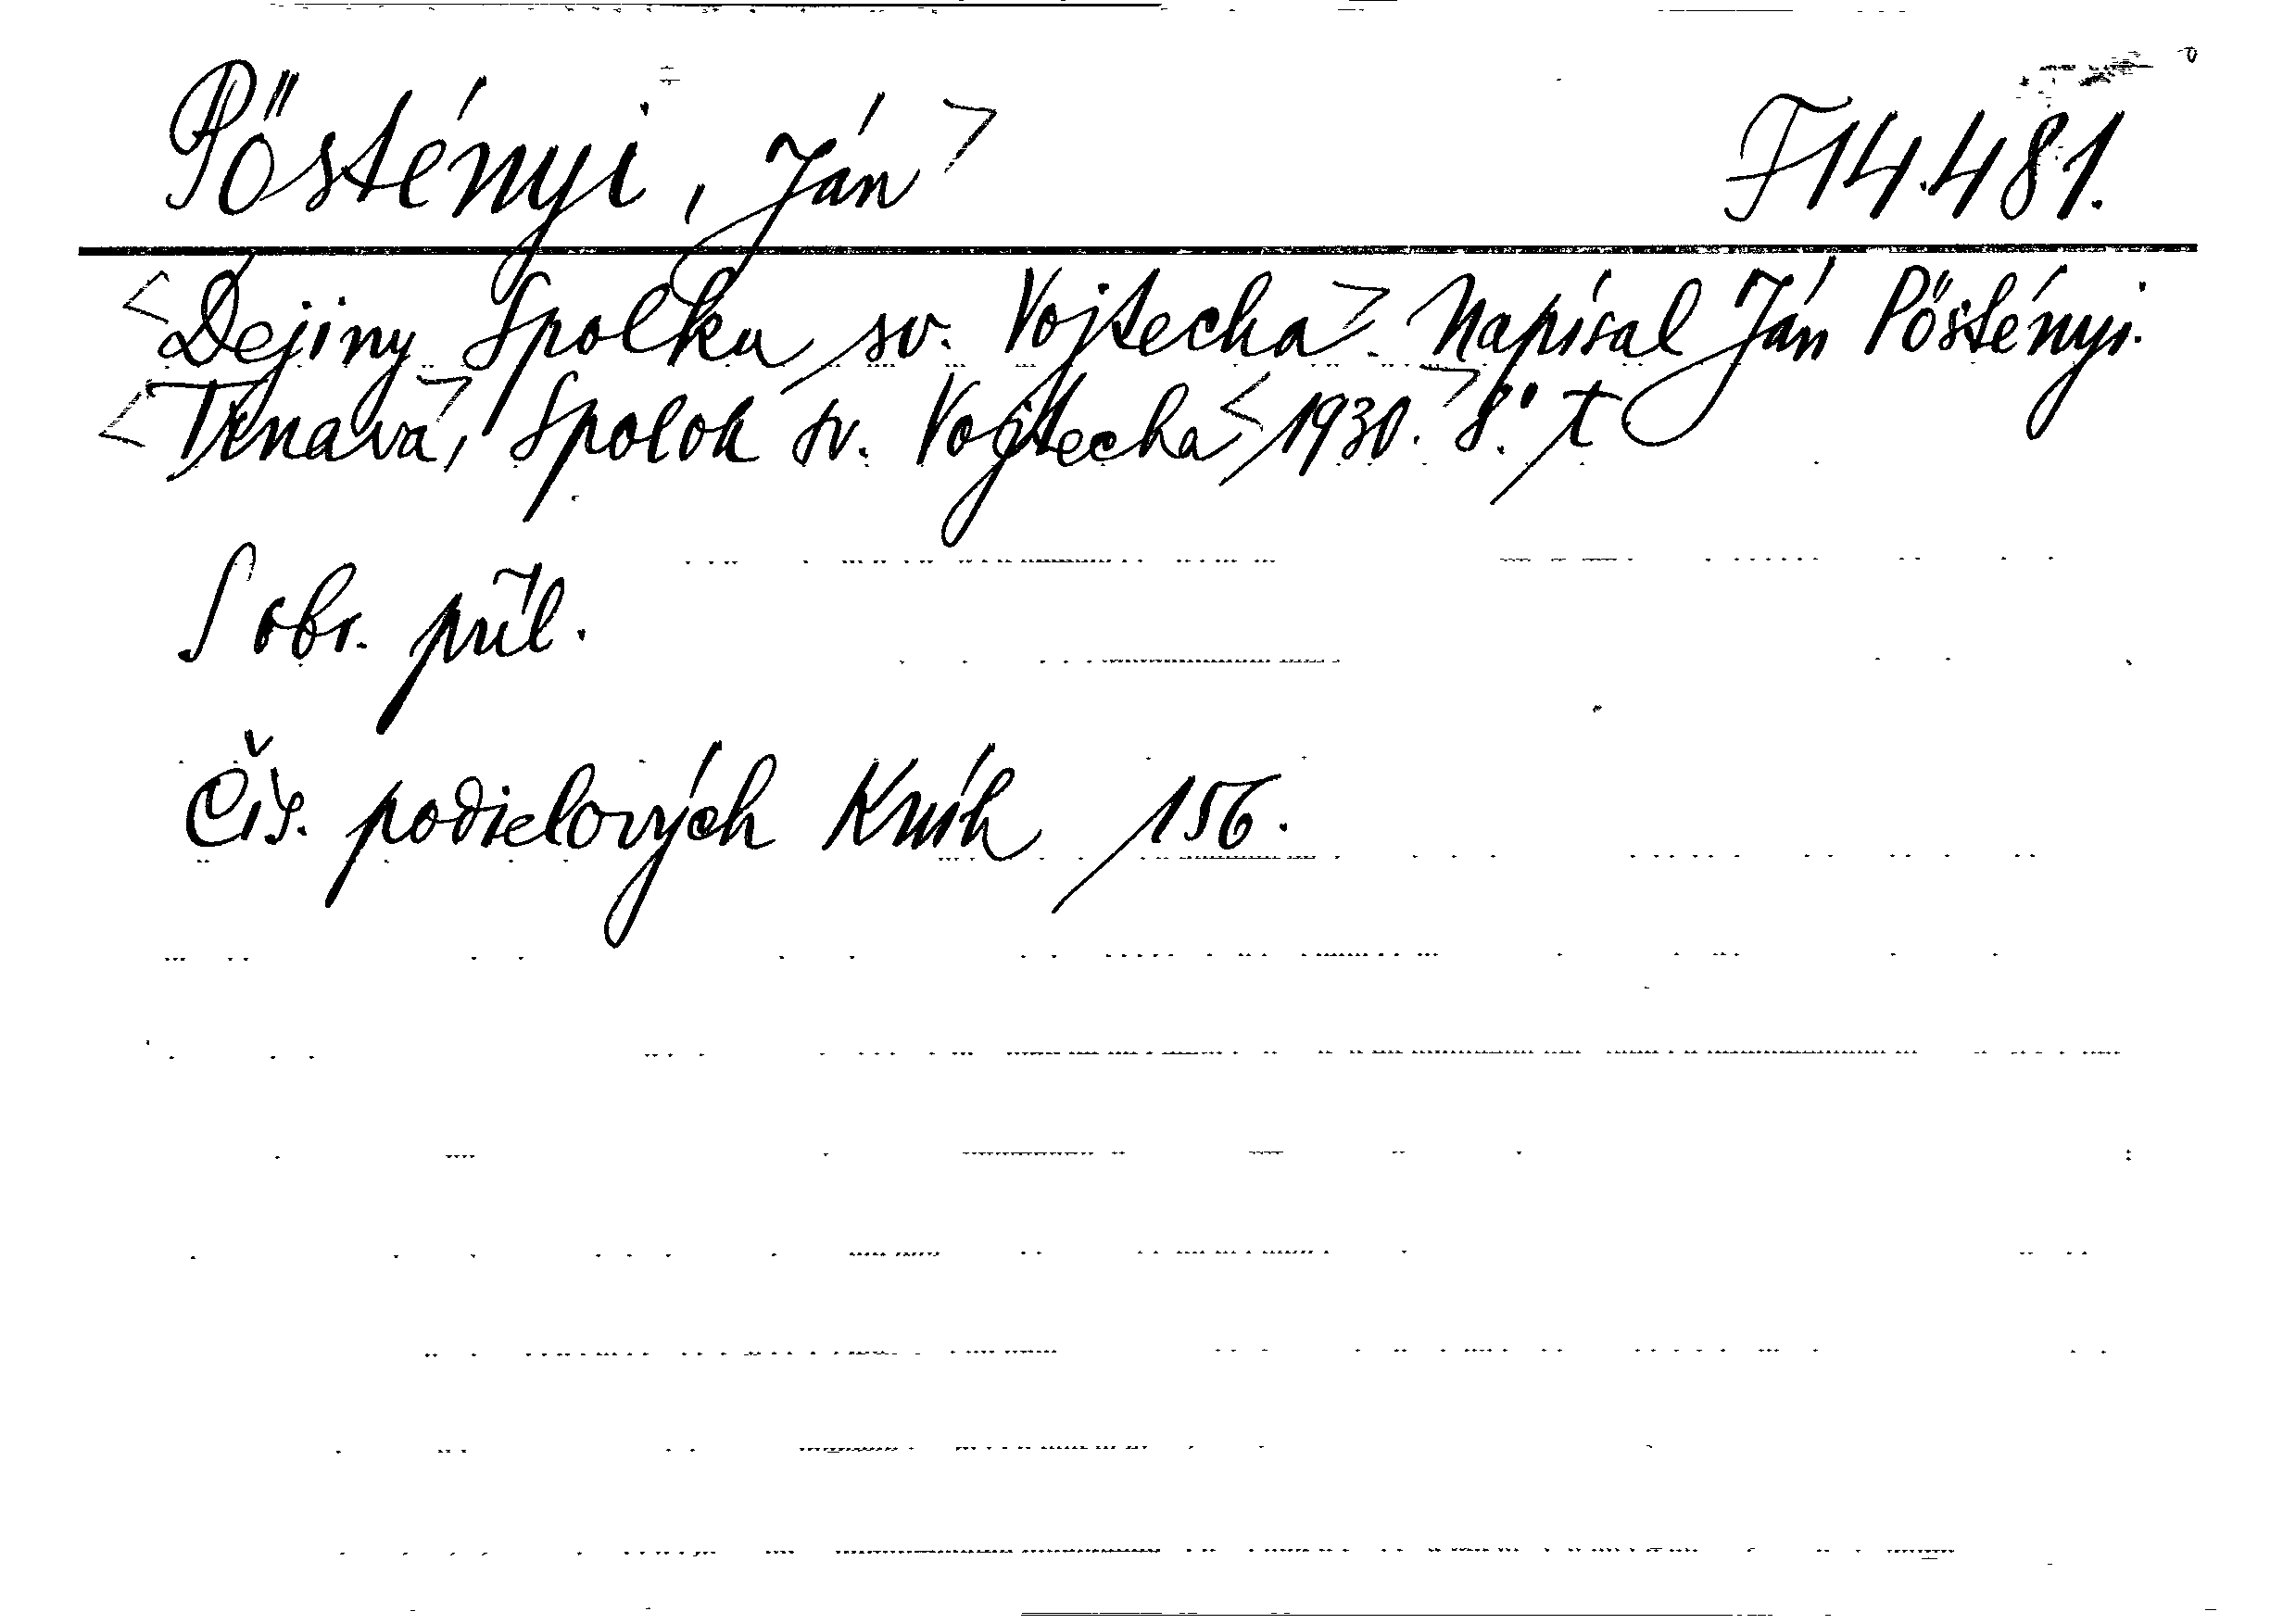 Pőstényi, Ján> F14.481.
<Dejiny Spolku sv. Vojtecha>. Napísal Ján Pőstényi.
<Trnava>, Spolok sv. Vojtecha <1930.> 8.°
S obr. príl.
Čís. podielových kníh 156.